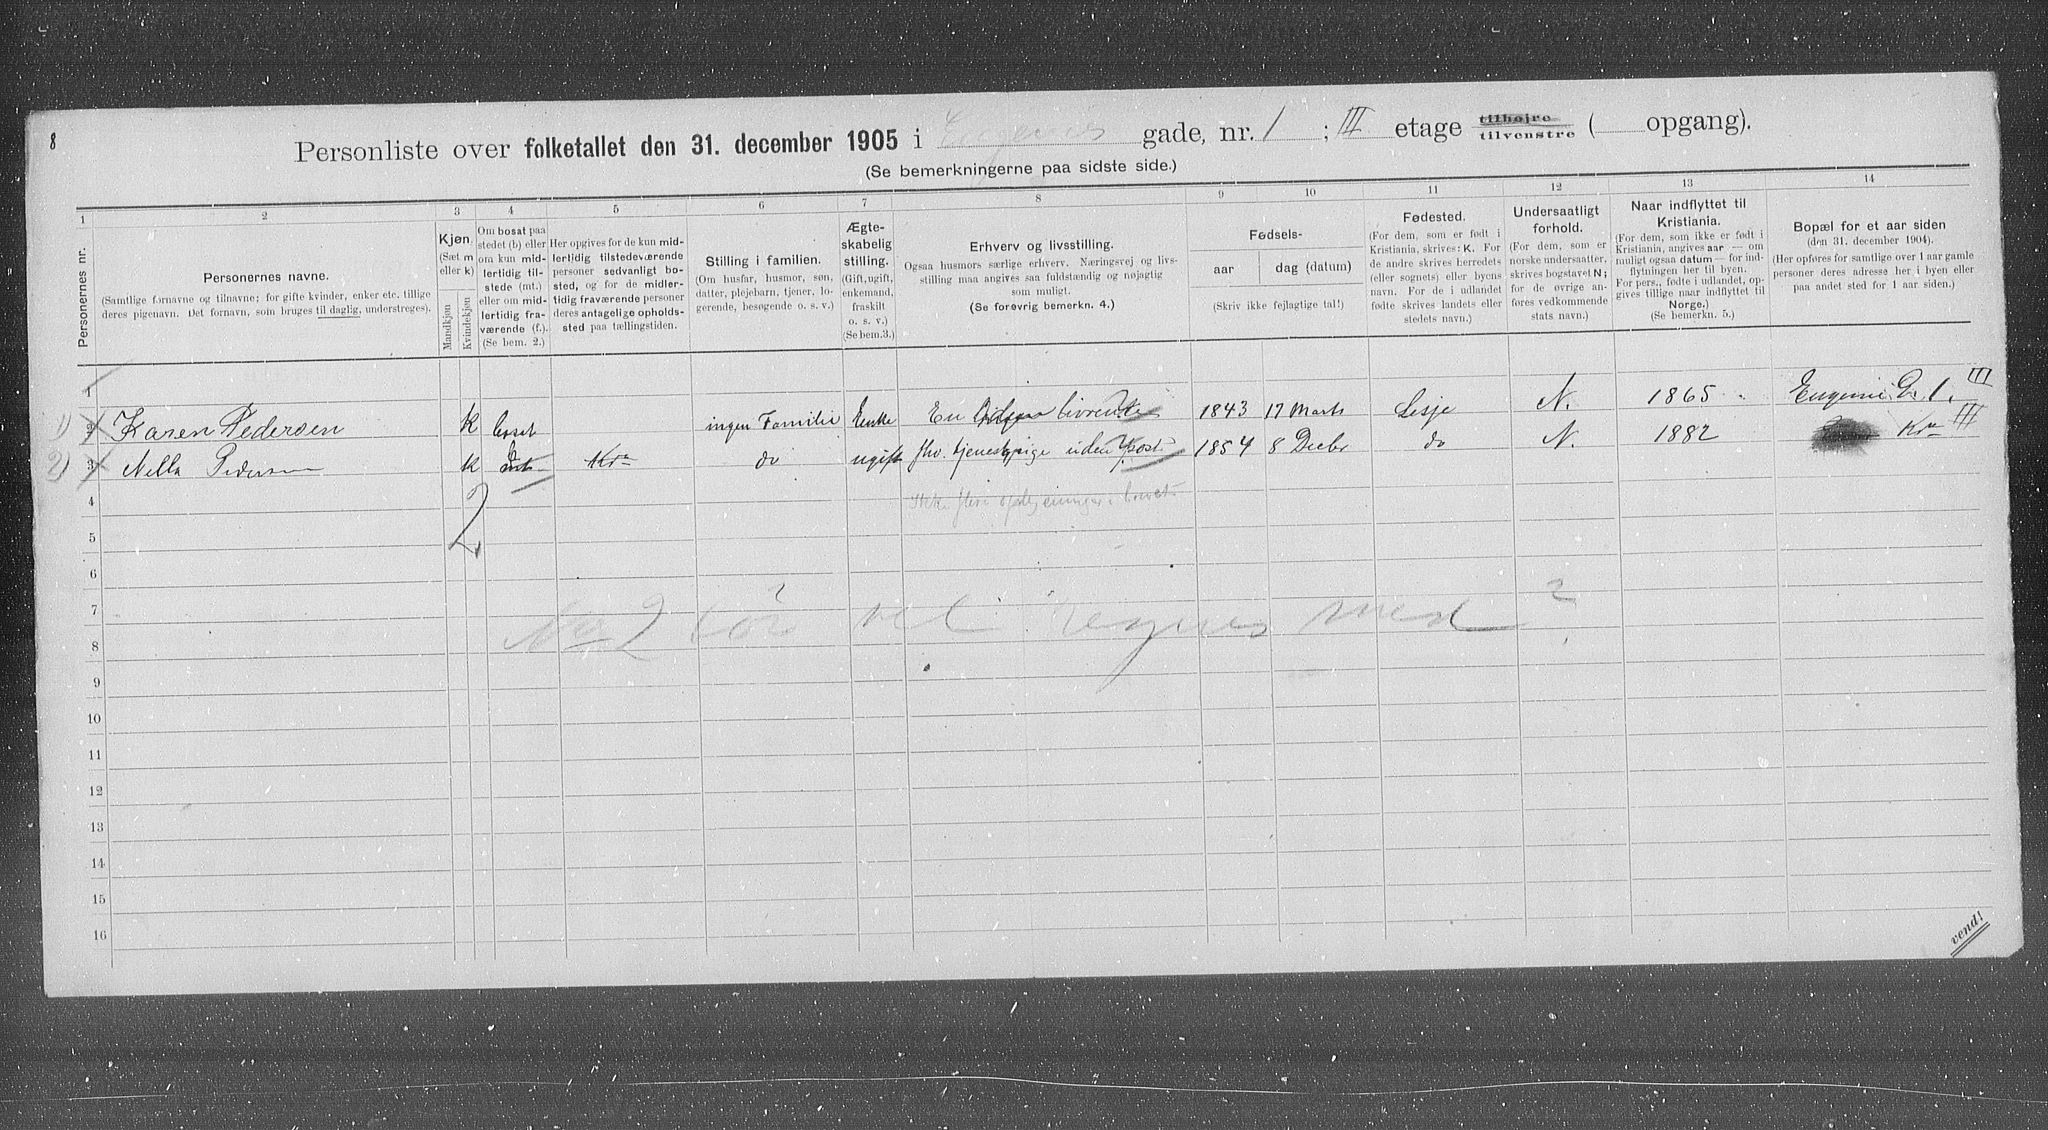 8
Personliste over folketallet den 31. december 1905 i Eugenies gade, nr. 1 ; III etage tilhøjre tilvenstre ( opgang).
(Se bemerkningerne paa sidste side.)
1 2 3 4 5 6 7 8 9 10 11 12 13 14
Personernes nr.
Personernes navne.
(Samtlige fornavne og tilnavne; for gifte kvinder, enker etc. tillige
deres pigenavn. Det fornavn, som bruges til daglig, understreges).
Kjøn.
(Sæt m
eller k)
Mandkjøn
Kvindekjøn
Om bosat paa
stedet (b) eller
om kun mid-
lertidig til-
stede (mt.)
eller om mid-
lertidig fra-
værende (f.).
(Se bem. 2.)
Her opgives for de kun mid-
lertidig tilstedeværende
personer sedvanlig bo-
sted, og for de midler-
tidig fraværende personer
deres antagelige opholds-
sted paa tællingstiden.
Stilling i familien.
(Om husfar, husmor, søn,
datter, plejebarn, tjener, lo-
gerende, besøgende o. s. v.)
Ægte-
skabelig
stilling.
(Gift, ugift,
enkemand,
fraskilt
o. s. v.)
(Se bem.3.)
Erhverv og livsstilling.
Ogsaa husmors særlige erhverv. Næringsvej og livs-
stilling maa angives saa fuldstændig og nøjagtig
som muligt.
(Se forøvrig bemerkn. 4.)
Fødsels-
aar
dag (datum)
(Skriv ikke fejlagtige tal!)
Fødested.
(For dem, som er født i
Kristiania, skrives: K. For
de andre skrives herredets
(eller sognets) eller byens
navn. For de i udlandet
fødte skrives landets eller
stedets navn.)
Undersaatligt
forhold.
(For dem, som er
norske undersaatter,
skrives bogstavet N;
for de øvrige an-
føres vedkommende
stats navn.)
Naar indflyttet til
Kristiania.
(For dem, som ikke er født i
Kristiania, angives aar — om
muligt ogsaa datum — for ind-
flytningen her til byen.
For pers., fødte i udlandet, op-
gives tillige naar indflyttet til
Norge.)
(Se bemerkn. 5.)
Bopæl for et aar siden
(den 31. december 1904).
(Her opføres for samtlige over 1 aar gamle
personer deres adresse her i byen eller
paa andet sted for 1 aar siden.)
1
1) 2 Karen Pedersen k bosat ingen Familie Enke En livrente 1843 17 Marts Lesje N. 1865 Eugenie G. 1. III
2) 3 Nella Pedersen k Kra do ugift fhv. tjenestpige uden post 1854 8 Decbr do N. 1882 Kra III
4 Ikke flere oplysninger
5 2
6
7 No 2 bør vel regnes med?
8
9
10
11
12
13
14
15
16
vend!